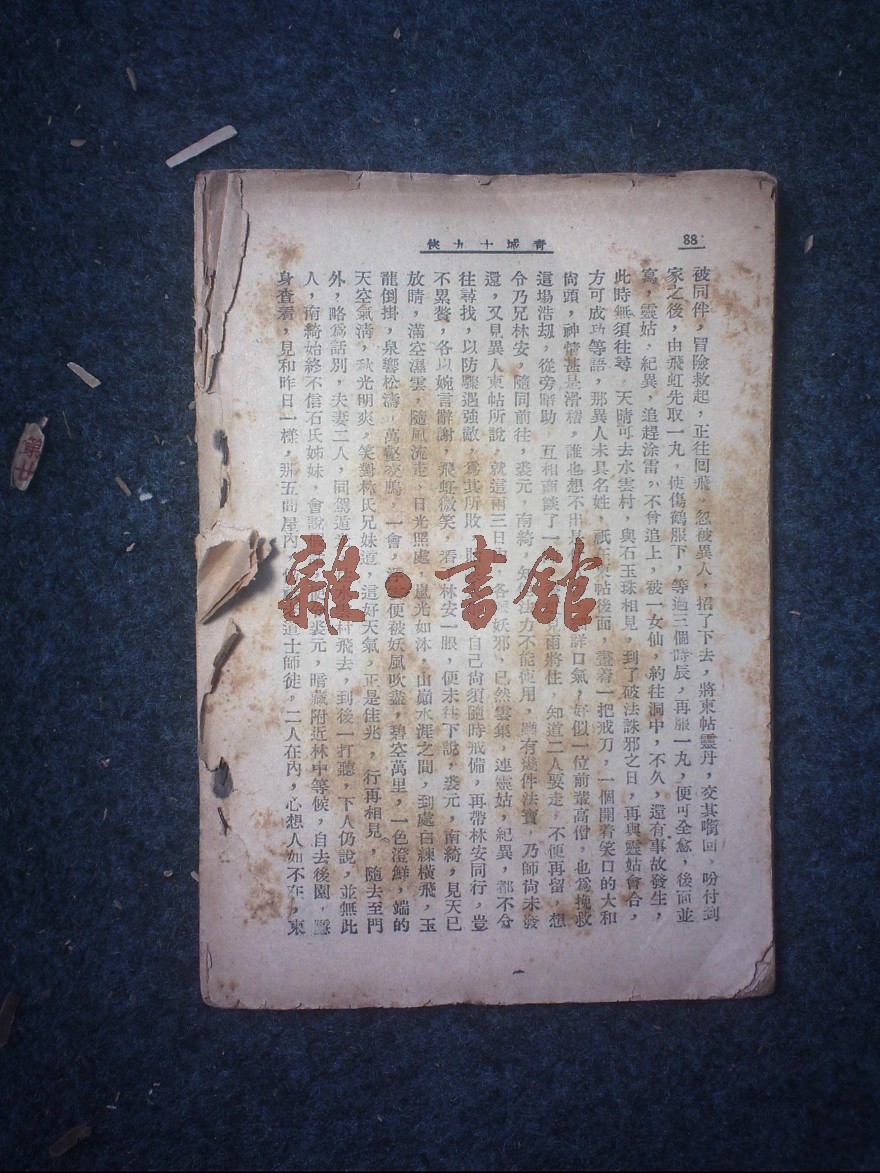 88
青城十九俠
被同伴，冒險救起，正往回飛，忽被異人，招了下去，將柬帖靈丹，交其啣回，吩付到
家之後，由飛虹先取一丸，使傷鶴服下，等過三個時辰，再服一丸，便可全愈，後面並
寫，靈姑，紀異，追趕涂雷，不曾追上，被一女仙，約往洞中，不久，還有事故發生，
此時無須往尋，天晴可去水雲村，與石玉珠相見，到了破法誅邪之日，再與靈姑會合，
方可成功等語，那異人未具名姓，祇在柬帖後面，畫着一把戒刀，一個開着笑口的大和
尚頭，神情甚是滑稽，誰也想不出是 詳口氣，好似一位前輩高僧，也爲挽救
這場浩刼，從旁暗助，互相商談了一 雨將住，知道二人要走，不便再留，想
令乃兄林安，隨同前往，裘元，南綺，知 法力不能使用，雖有幾件法寶，乃師尚未發
還，又見異人柬帖所說，就這兩三日 各 妖邪，已然雲集，連靈姑，紀異，都不分
往尋找，以防驟遇強敵，爲其所敗 自己尚須隨時戒備，再帶林安同行，豈
不累贅，各以婉言辭謝，飛虹微笑，看 林安一眼，便未往下說，裘元，南綺，見天已
放晴，滿空濕雲，隨風流走，日光照處，嵐光如沐，山巔水涯之間，到處白練橫飛，玉
龍倒掛，泉響松濤，萬壑交鳴，一會，浮雲便被妖風吹盡，碧空萬里，一色澄鮮，端的
天空氣清，秋光明爽，笑對林氏兄妹道，這好天氣，正是佳兆，行再相見，隨去至門
外，略爲話別，夫妻二人，同駕遁 村飛去，到後一打聽，下人仍說，並無此
人，南綺始終不信石氏姊妹，會說 裘元，暗藏附近林中等候，自去後園，隱
身查看，見和昨日一樣，那五間屋內， 道士師徒，二人在內，心想人如不在，東
雜·書舘
第廿